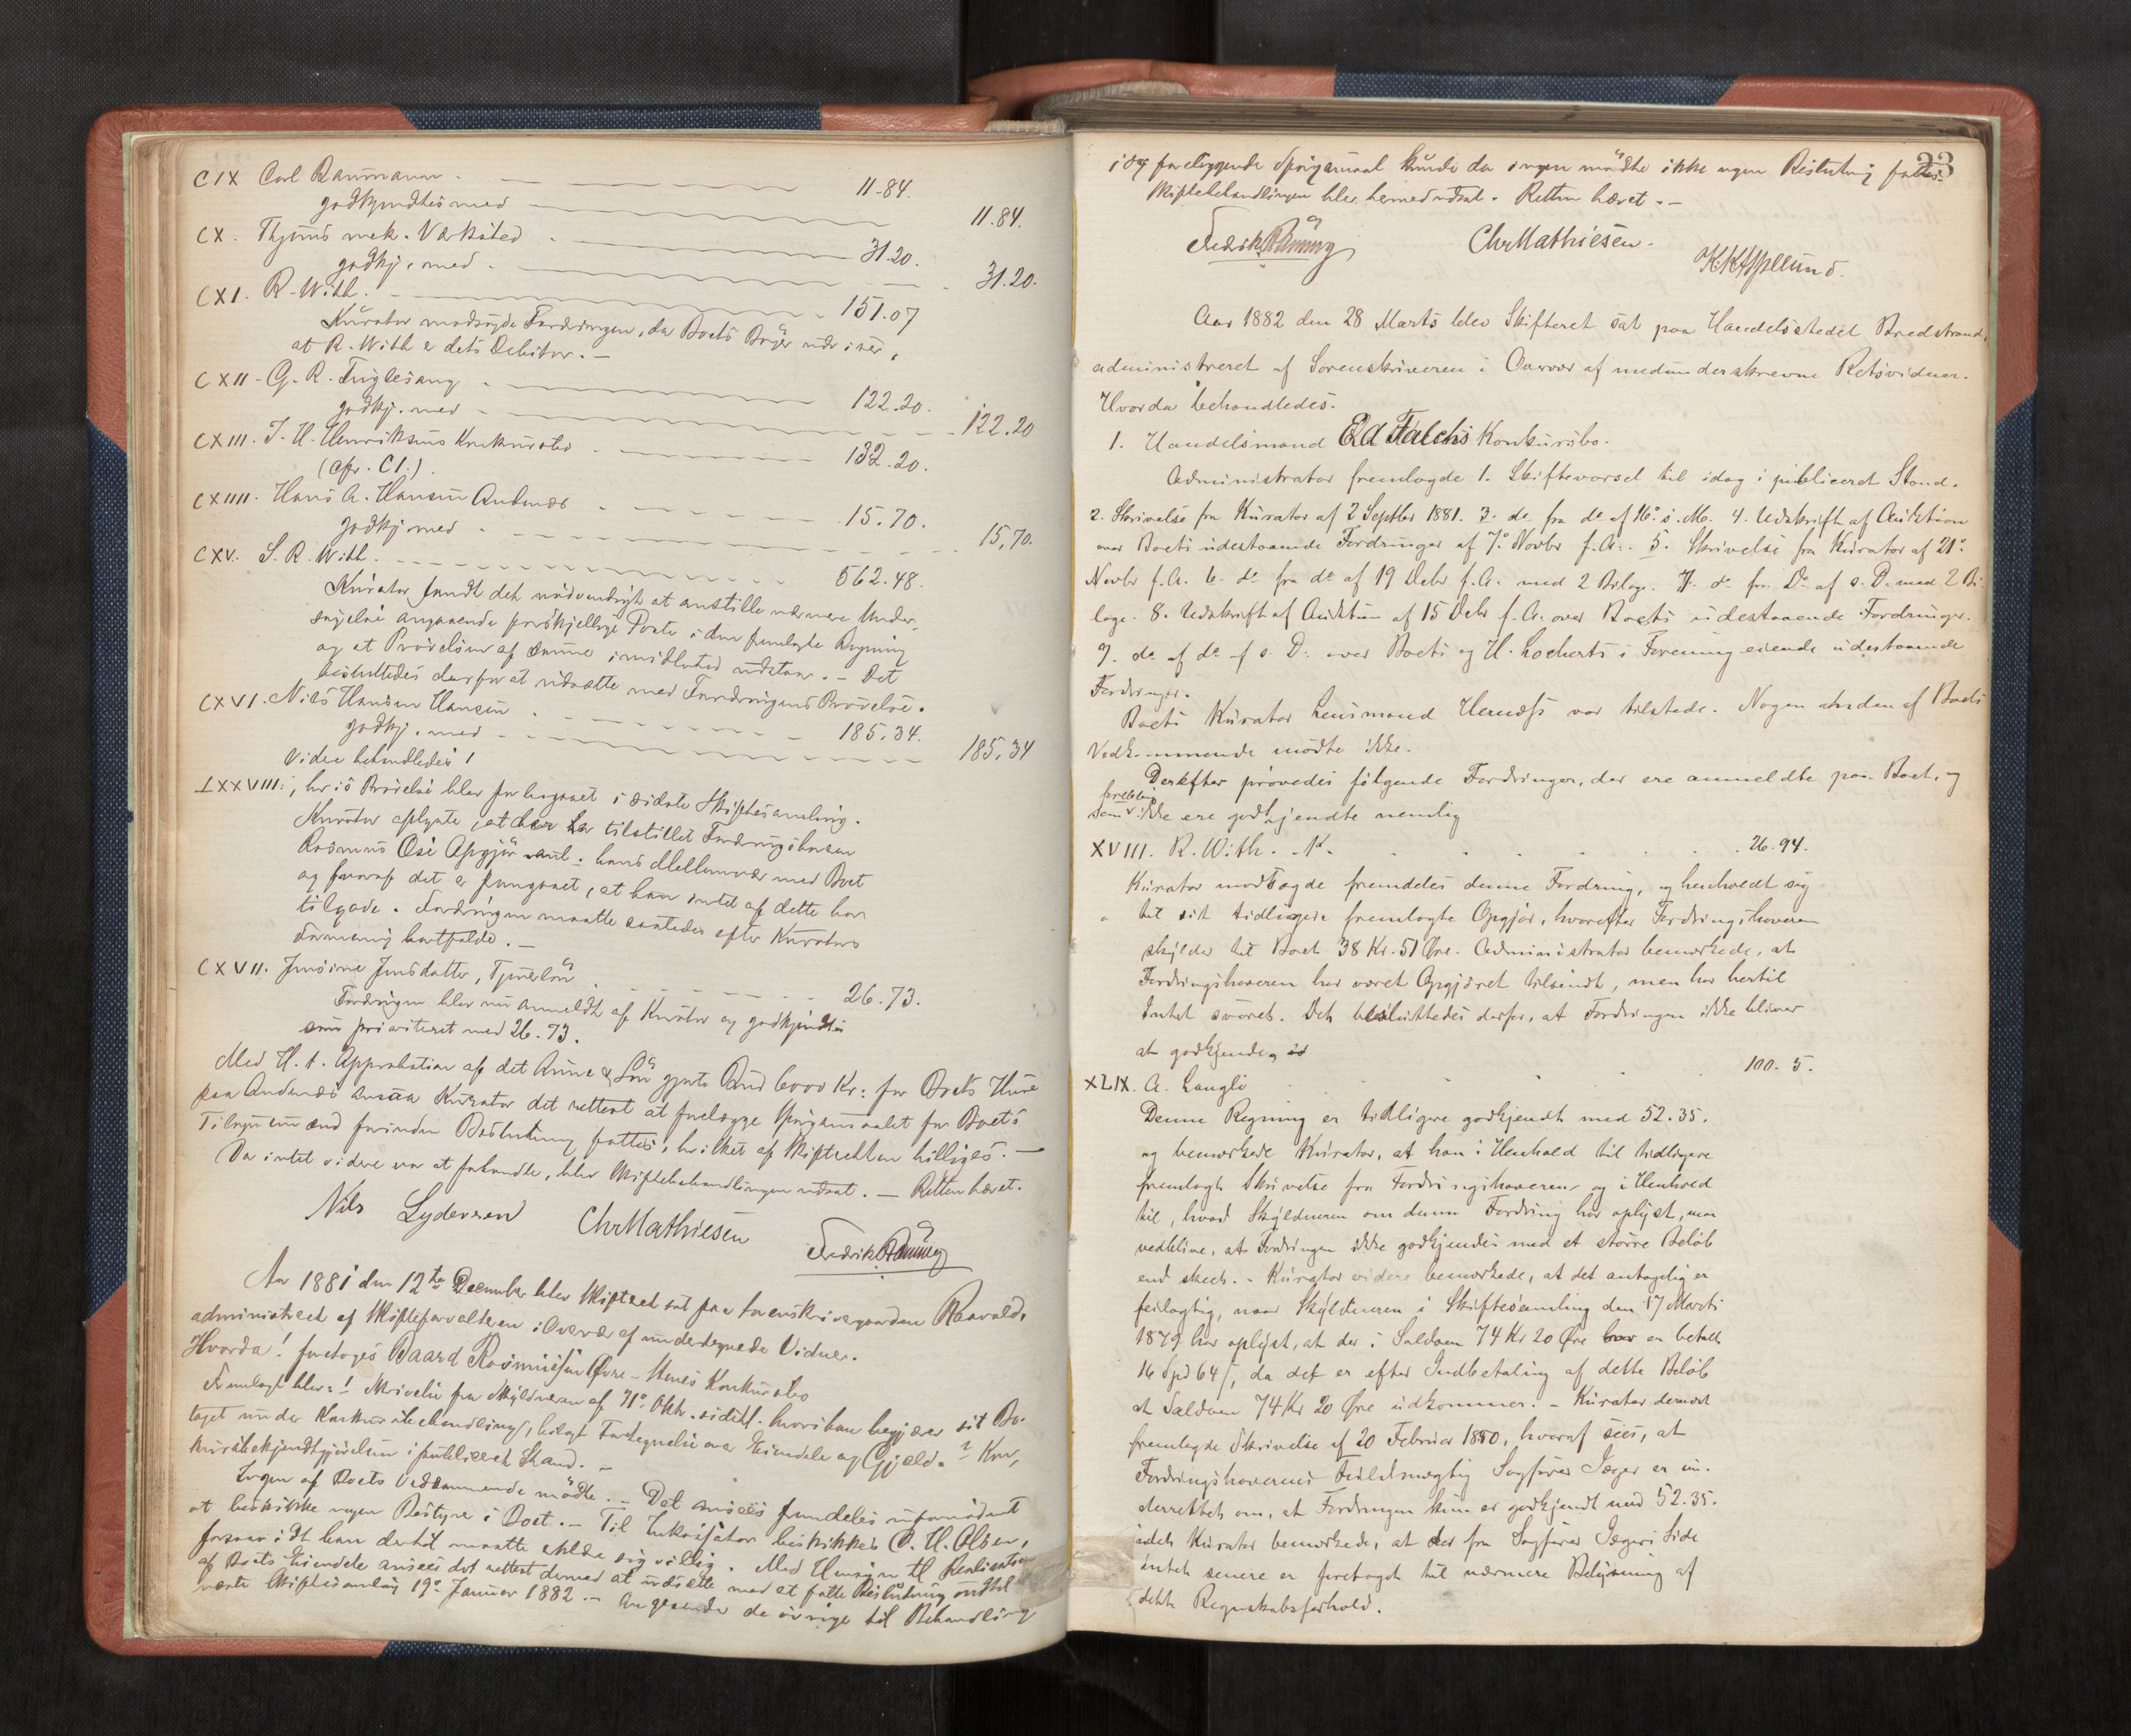 CIX Carl Baumann 11-84.
godkjendtes med 11.84.
CX. Thjems mek. Værksted 31.20.
godkj. med 31.20.
CXI. R. With. 151.07
Kurator modsagde Fordringen, da Boets Bøger udviser,
at R. With er dets Debitor.
CXII - G. R. Fuglesang 122.20.
godkj. med 122.20
CXIII. J. H. Henriksens Konkursbo 132.20.
(cfr. CI.)
CXIIII. Hans A. Hansen Andenæs 15.70.
godkj. med 15,70.
CXV. S. R. With. 562.48.
Kurator fandt det nødvendigt at anstille nærmere Under-
søgelse angaaende forskjellige Poster i den fremlagte Regning
og at Prøvelsen af samme imidlertid udstaar. - Det
besluttedes derfor at udsætte med Fordringens Prøvelse.
CXVI. Nils Hansen Hansen 185.34.
godkj. med 185,34
Videre behandledes!
LXXVIII:, hvis Prøvelse blev forbigaaet i sidste Skiftesamling.
Kurator oplyste, at der har tilstillet Fordringshaveren
Rasmus Opgjør hans Mellemvær med Boet
og hvoraf det er fremgaaet, at han intet af dette har
tilgode. Fordringen maatte saaledes efter Kurators
Formening bortfalde. -
CXVII. Jensine Jensdatter, Tjenerløn 26.73.
Fordringen blev nu anmeldt af Kurator og godkjendtes
som prioriteret med 26.73.
Med H. t. Approbation af det gjorte Bud 6000 Kr: for Boets Huse
paa Andenæs ansaa Kurator det rettest at forelægge Spørgsmaalet for Boets
Tilsyn end forinden Beslutning fattes, hvilket af Skifteretten billiges. -
Da intet videre var at forhandle, blev Skiftebehandlingen udsat. - Retten hævet.
Nils Lydersen Chr Mathiesen Fredrik Rønning
Aar 1881 den 12te December blev Skifteret sat paa Sorenskrivergaarden
administreret af Skifteforvalteren i Overvær af undertegnede Vidner.
Hvorda! foretoges Baard Rasmussen Konkursbo
Fremlagt blev: 1 Skrivelse fra Skyldneren af 31. Oktr. sidstl. hvori han begjærer sit Bo
taget under Konkursbehandling, bilagt Fortegnelse over Eiendele og Gjæld. 2 Kon-
kursbekjendtgjørelsen i publiceret Stand. -
Ingen af Boets Vedkommende mødte. - Det ansees fremdeles ufornødent
at beskikke nogen Bestyrer i Boet. - Til Inkvisitor beskikkes O. H. Olsen,
forsaavidt han dertil maatte erklære sig villig. Med Hensyn til Realisation
af Boets Eiendele ansees det rettest dermed at udsætte med at fatte Beslutning indtil
næste Skiftesamling 19de Januar 1882. - Angaaende de øvrige til Behandling
23
idag foreliggende Spørgsmaal kunde da ingen mødte ikke nogen Beslutning fattes.
Skiftebehandlingen blev hermed udsat. Retten hævet. -
Fredrik Rønning Chr Mathiesen.
K. K. Asplund.
Aar 1882 den 28 Marts blev Skifteret sat paa Handelsstedet Bredstrand,
administreret af Sorenskriveren i Overvær af medunderskrevne Retsvidner.
Hvorda behandledes.
1. Handelsmand Ed Falchs Konkursbo.
Administrator fremlagde 1. Skiftevarsel til idag i publiceret Stand.
2. Skrivelse fra Kurator af 2 Septbr 1881. 3. do fra do af 16. s. M. 4. Udskrift af Auktion
over Boets udestaaende Fordringer af 7. Novbr f. A. 5. Skrivelse fra Kurator af 21.
Novbr f. A. 6. do fra do af 19 Debr f. A. med 2 Bilage. 7. do fra Do af s. D. med 2 Bi-
lage. 8. Udskrift af Auktion af 15 Debr f. A. over Boets udestaaende Fordringer.
9. do af do af s. D. over Boets og H. Locherts i Forening eiende udestaaende
Fordringer.
Boets Kurator Lensmand var tilstede. Nogen anden af Boets
Vedkommende mødte ikke.
Derefter prøvedes følgende Fordringer, der ere anmeldte paa Boet, og
foreløbig
som v ikke ere godkjendte nemlig
XVIII. R. With. 26.94.
Kurator modsagde fremdeles denne Fordring, og henholdt sig
til sit tidligere fremlagte Opgjør, hvorefter Fordringshaveren
skylder til Boet 38 Kr. 51 Øre. Administrator bemærkede, at
Fordringshaveren har været Opgjøret tilsendt, men har hertil
Intet svaret. Det besluttedes derfor, at Fordringen ikke bliver
at godkjende,
XLIX. A. Langli 100. 5.
Denne Regning er tidligere godkjendt med 52.35.
og bemærkede Kurator, at han i Henhold til tidligere
fremlagt Skrivelse fra Fordringshaveren og i Henhold
til, hvad Skyldneren om denne Fordring har oplyst, maa
vedblive, at Fordringen ikke godkjendes med et større Beløb
end skeet. - Kurator videre bemærkede, at det antagelig er
feilagtig, naar Skyldneren i Skiftesamling den 17 Marts
1879 har oplyst, at der i Saldoen 74 Kr 20 Øre er betalt
16 Spd 64 /, da det er efter Indbetaling af dette Beløb
at Saldoen 74 Kr 20 Øre udkommer. - Kurator dernæst
fremlagde Skrivelse af 20 Februar 1880, hvoraf sees, at
Fordringshaverens Fuldmægtig Sagfører Jæger er un-
derrettet om, at Fordringen kun er godkjendt med 52.35.
idet Kurator bemærkede, at der fra Sagfører Jægers Side
intet senere er foretaget til nærmere Belysning af
dette Regnskabsforhold.